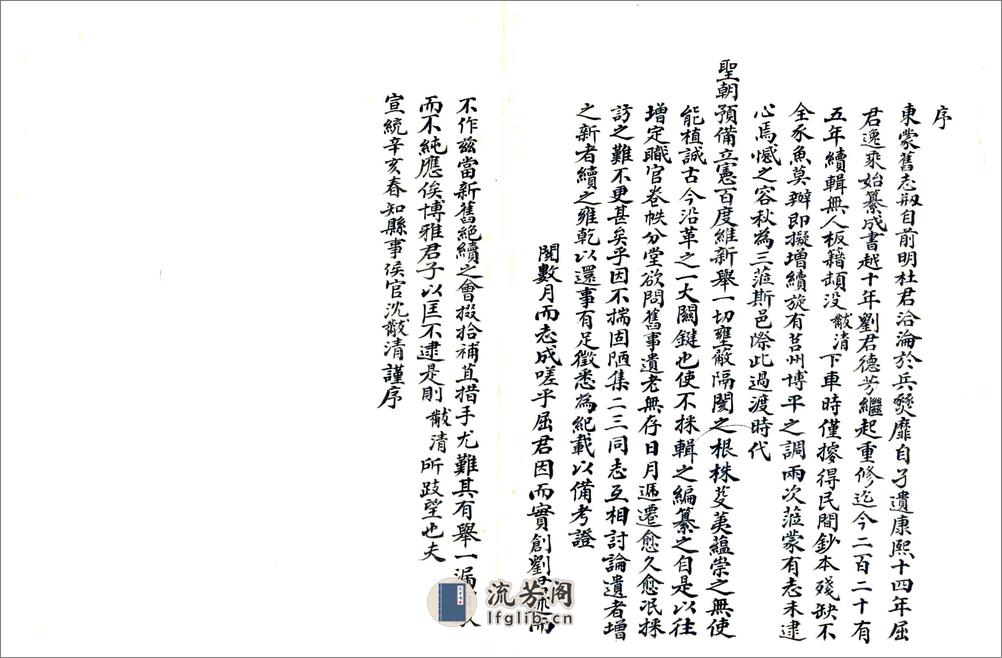 序
東蒙舊志刱自前明杜君洽淪於兵燹靡自孑遺康熙十四年屈
君逸乘始纂成書越十年劉君德芳繼起重修迄今二百二十有
五年續輯無人板籍頗没黻清下車時僅擄得民間鈔本殘缺不
全豕魚莫辦即擬增續旋有莒州博平之調兩次蒞蒙有志未逮
心焉憾之客秋為三蒞斯邑際此過渡時代
聖朝預備立憲百度維新舉一切壅蔽隔閡之根株芟荑蘊崇之無使
能植誠古今沿革之一大關鍵也使不採輯之編纂之自是以往
增定職官卷帙分堂欲問舊事遺老無存日月遞遷愈久愈泯採
訪之難不更甚矣乎因不揣固陋集二三同志互相討論遺者增
之新者續之雍乾以還事有足徵悉為紀載以備考證
閱數月而志成嗟乎屈君因而實創劉述而
不作茲當新舊絕續之會掇拾補苴措手尤難其有舉一漏
而不純應俟博雅君子以匡不逮是則黻清所跂望也夫
宣統辛亥春知縣事侯官沈黻清謹序
流芳阁
lfglib.cn